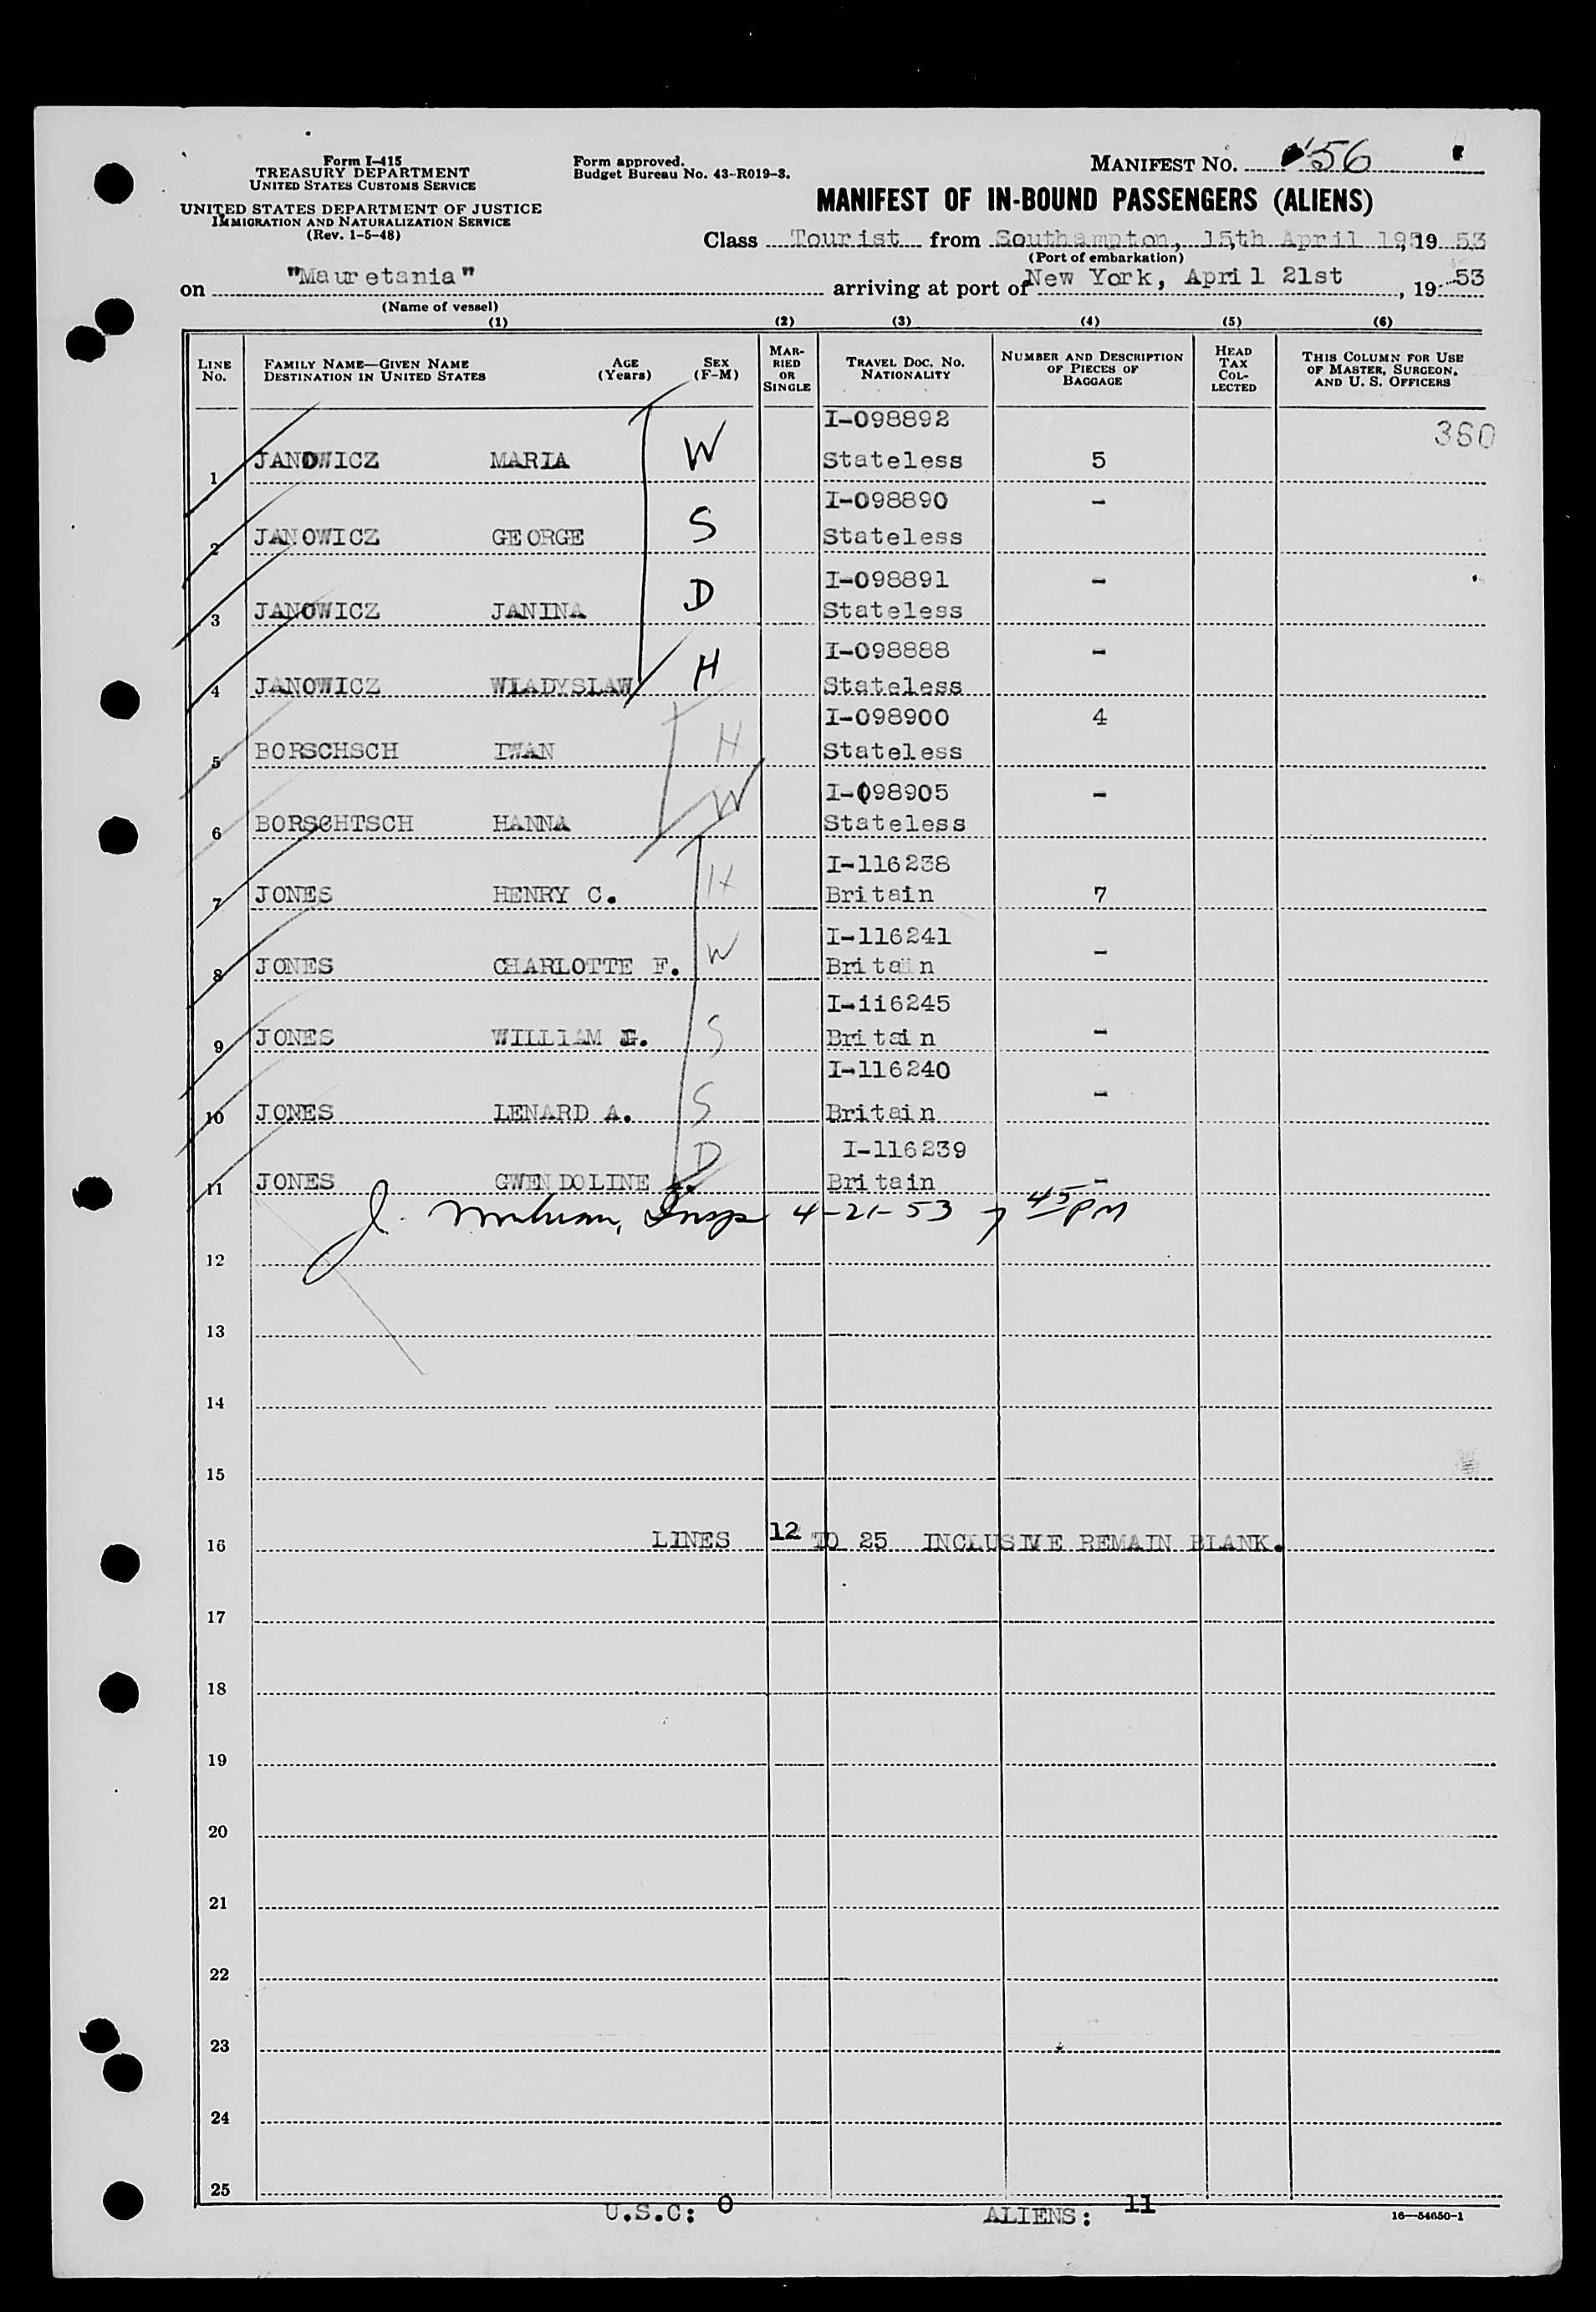 Form I-415
TREASURY DEPARTMENT
UNITED STATES CUSTOMS SERVICE
UNITED STATES DEPARTMENT OF JUSTICE
IMMIGRATION AND NATURALIZATION SERVICE
(Rev. 1-5-48)
Form approved.
Budget Bureau No. 43-R019-3.
MANIFEST NO. 56
MANIFEST OF IN-BOUND PASSENGERS (ALIENS)
Class Tourist from Southampton, 15th April 195, 19 53
(Port of embarkation)
on "Mauretania" arriving at port of New York, April 21st, 19 53
(Name of vessel)
(1) (2) (3) (4) (5) (6)
LINE NO. FAMILY NAME—GIVEN NAME DESTINATION IN UNITED STATES AGE (Years) SEX (F-M) MARRIED OR SINGLE TRAVEL DOC. NO. NATIONALITY NUMBER AND DESCRIPTION OF PIECES OF BAGGAGE HEAD TAX COLLECTED THIS COLUMN FOR USE OF MASTER, SURGEON, AND U. S. OFFICERS
I-098892 360
1 JANOWICZ MARIA W Stateless 5
I-098890 -
2 JANOWICZ GEORGE S Stateless
I-098891 -
3 JANOWICZ JANINA D Stateless
I-098888 -
4 JANOWICZ WLADYSLAW H Stateless
I-098900 4
5 BORSCHSCH IWAN H Stateless
I-098905 -
6 BORSCHTSCH HANNA W Stateless
I-116238
7 JONES HENRY C. H Britain 7
I-116241 -
8 JONES CHARLOTTE F. W Britain
I-ii6245
9 JONES WILLIAM G. S Britain -
I-116240 -
10 JONES LENARD A. S Britain
I-116239
11 JONES GWENDOLINE D Britain -
J. Insp 4-21-53 7 45 PM
12
13
14
15
16 LINES 12 TO 25 INCLUSIVE REMAIN BLANK.
17
18
19
20
21
22
23
24
25
U.S.C: 0 ALIENS: 11 16—54650-1